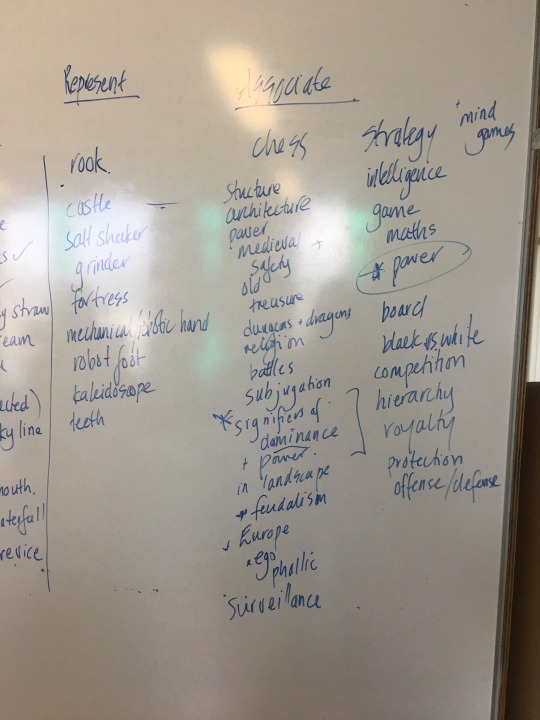 Represent
rook.
castle
salt shaker
grinder
fortress
mechanical/robotic hand
robot foot
kaleidoscope
teeth
Associate
chess
structure
architecture
power
medieval +
safety
old
treasure
dungeons + dragons
religion
battles
subjugation
* signifiers of
dominance
+ power
in landscape
feudalism
Europe
ego
phallic
surveillance
strategy
+ mind
games
intelligence
game
maths
* power
board
black vs. white
competition
hierarchy
royalty
protection
offense/defense
y straw
ky line
outh.
revice